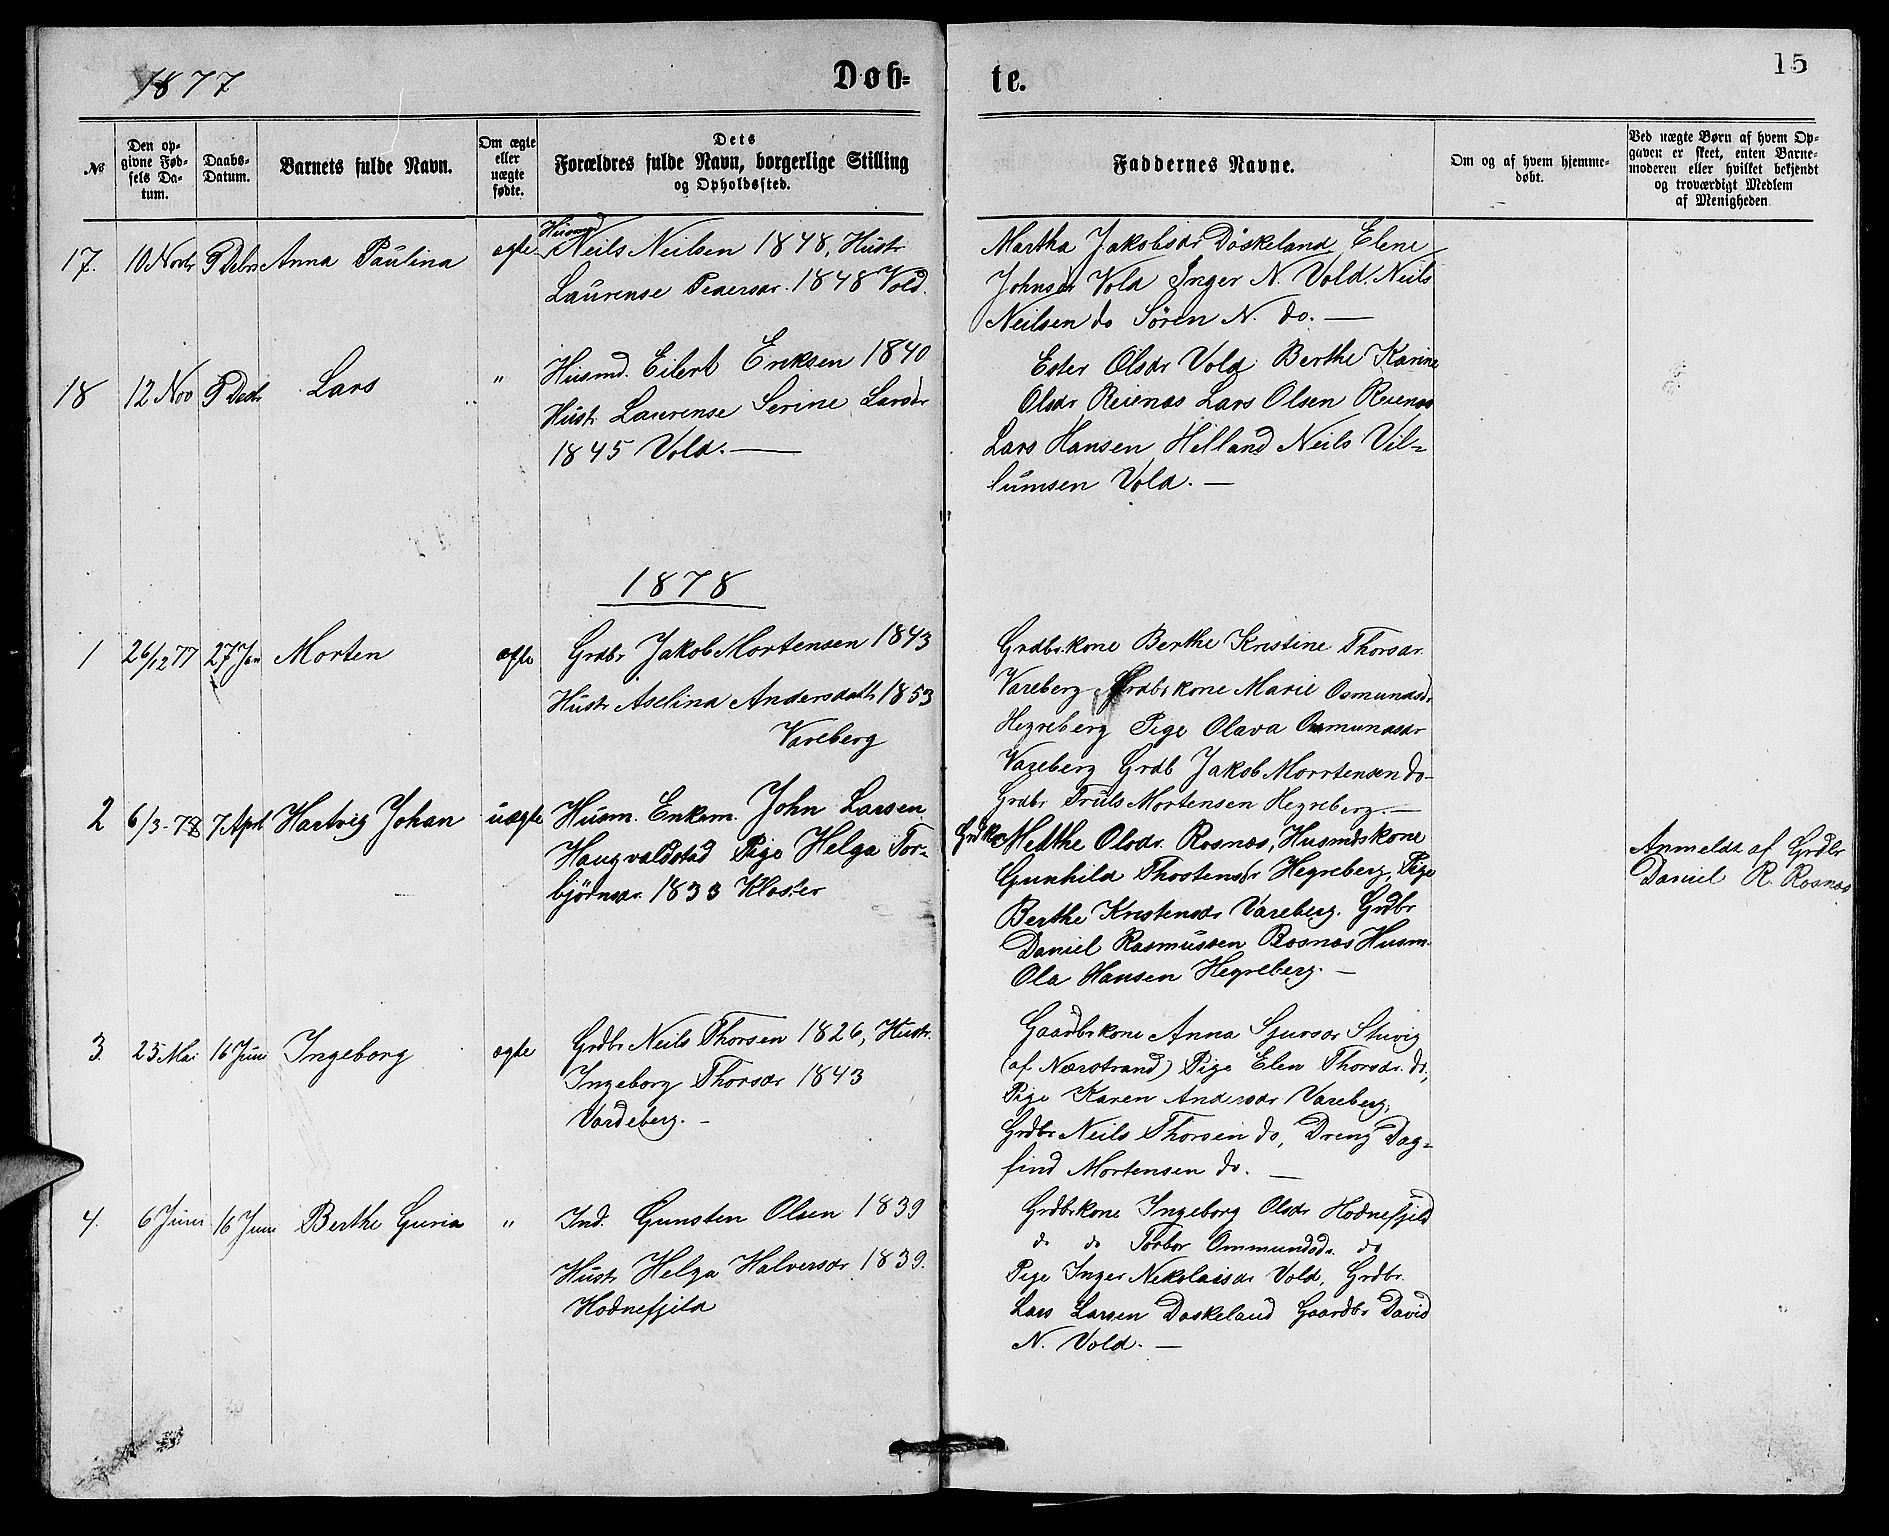 1877
Døb-
te.
15
No
Den op-
givne Fød-
sels Da-
tum.
Daabs-
Datum.
Barnets fulde Navn.
Om ægte
eller
uægte
fødte.
Dets
Forældres fulde Navn, borgerlige Stilling
og Opholdssted.
Faddernes Navne.
Om og af hvem hjemme-
døbt.
Ved uægte Børn af hvem Op-
gaven er skeet, enten Barne-
moderen eller hvilket bekjendt
og troværdigt Medlem
af Menigheden
17. 10 Novbr 9 Debr Anna Paulina egte Husmd Neils Neilsen 1848, Hustr
Laurense Pedersdr. 1848 Vold.
Martha Jakobsdr Døskeland, Elene
Johnsdr Vold Inger N. Vold. Neils
Neilsen do Sören N. do. —
18 12 Nov 9 Decbr Lars " Husmd. Eilert Eriksen 1840
Hustr Laurense Serine Larsdr
1845 Vold. —
Ester Olsdr Vold Berthe Karine
Olsdr Reienæs Lars Olsen Reienæs
Lars Hansen Helland Neils Vil-
lumsen Vold. —
1878
1 26/12 77 27 Jan Morten egte Grdbr Jakob Mortensen 1843
Hustr Aselina Andersdatt 1853
Vareberg
Grdbrkone Berthe Kristine Thorsdr.
Vareberg Grdbrkone Marie Osmundsdr
Hegreberg Pige Olava Osmundsdr
Vareberg Grdb Jakob Morrtensen do-
Grdbr Truls Mortensen Hegreberg. —
2 6/3-78 7 April Hartvig Johan uægte Husm. Enkem. John Larsen
Haugvaldstad Pige Helga Tor-
björnsdr. 1833 Kloster
Grdkon Melthe Olsdr. Rosnæs, Husmdskone
Gunhild Thostensdr Hegreberg, Pige
Berthe Kristensdr Vareberg. Grdbr
Daniel Rasmussen Rosnæs Husm.
Ola Hansen Hegreberg. —
Anmeldt af Grdbr
Daniel R. Rosnæs
3. 25 Mai 16 Juni Ingeborg egte Grdbr Neils Thorsen 1826, Hustr.
Ingeborg Thorsdr 1843
Vardeberg. -
Gaardbrkone Anna Sjursdr Stuvig
(af Nærstrand) Pige Elen Thorsdr. do,
Pige Karen Andersdr Vareberg,
Grdbr Neils Thorsen do, Dreng Dag-
find Mortensen do. —
4. 6 Juni 16 Juni Berthe Guria " Ind. Gunsten Olsen 1839
Hustr Helga Halversdr 1839.
Hodnefjeld
Grdbrkone Ingeborg Olsdr Hodnefjeld
do do Torbor Ommundsdr do
Pige Inger Nekolaisdr Vold, Grdbr.
Lars Larsen Doskeland Gaardbr David
N. Vold. —